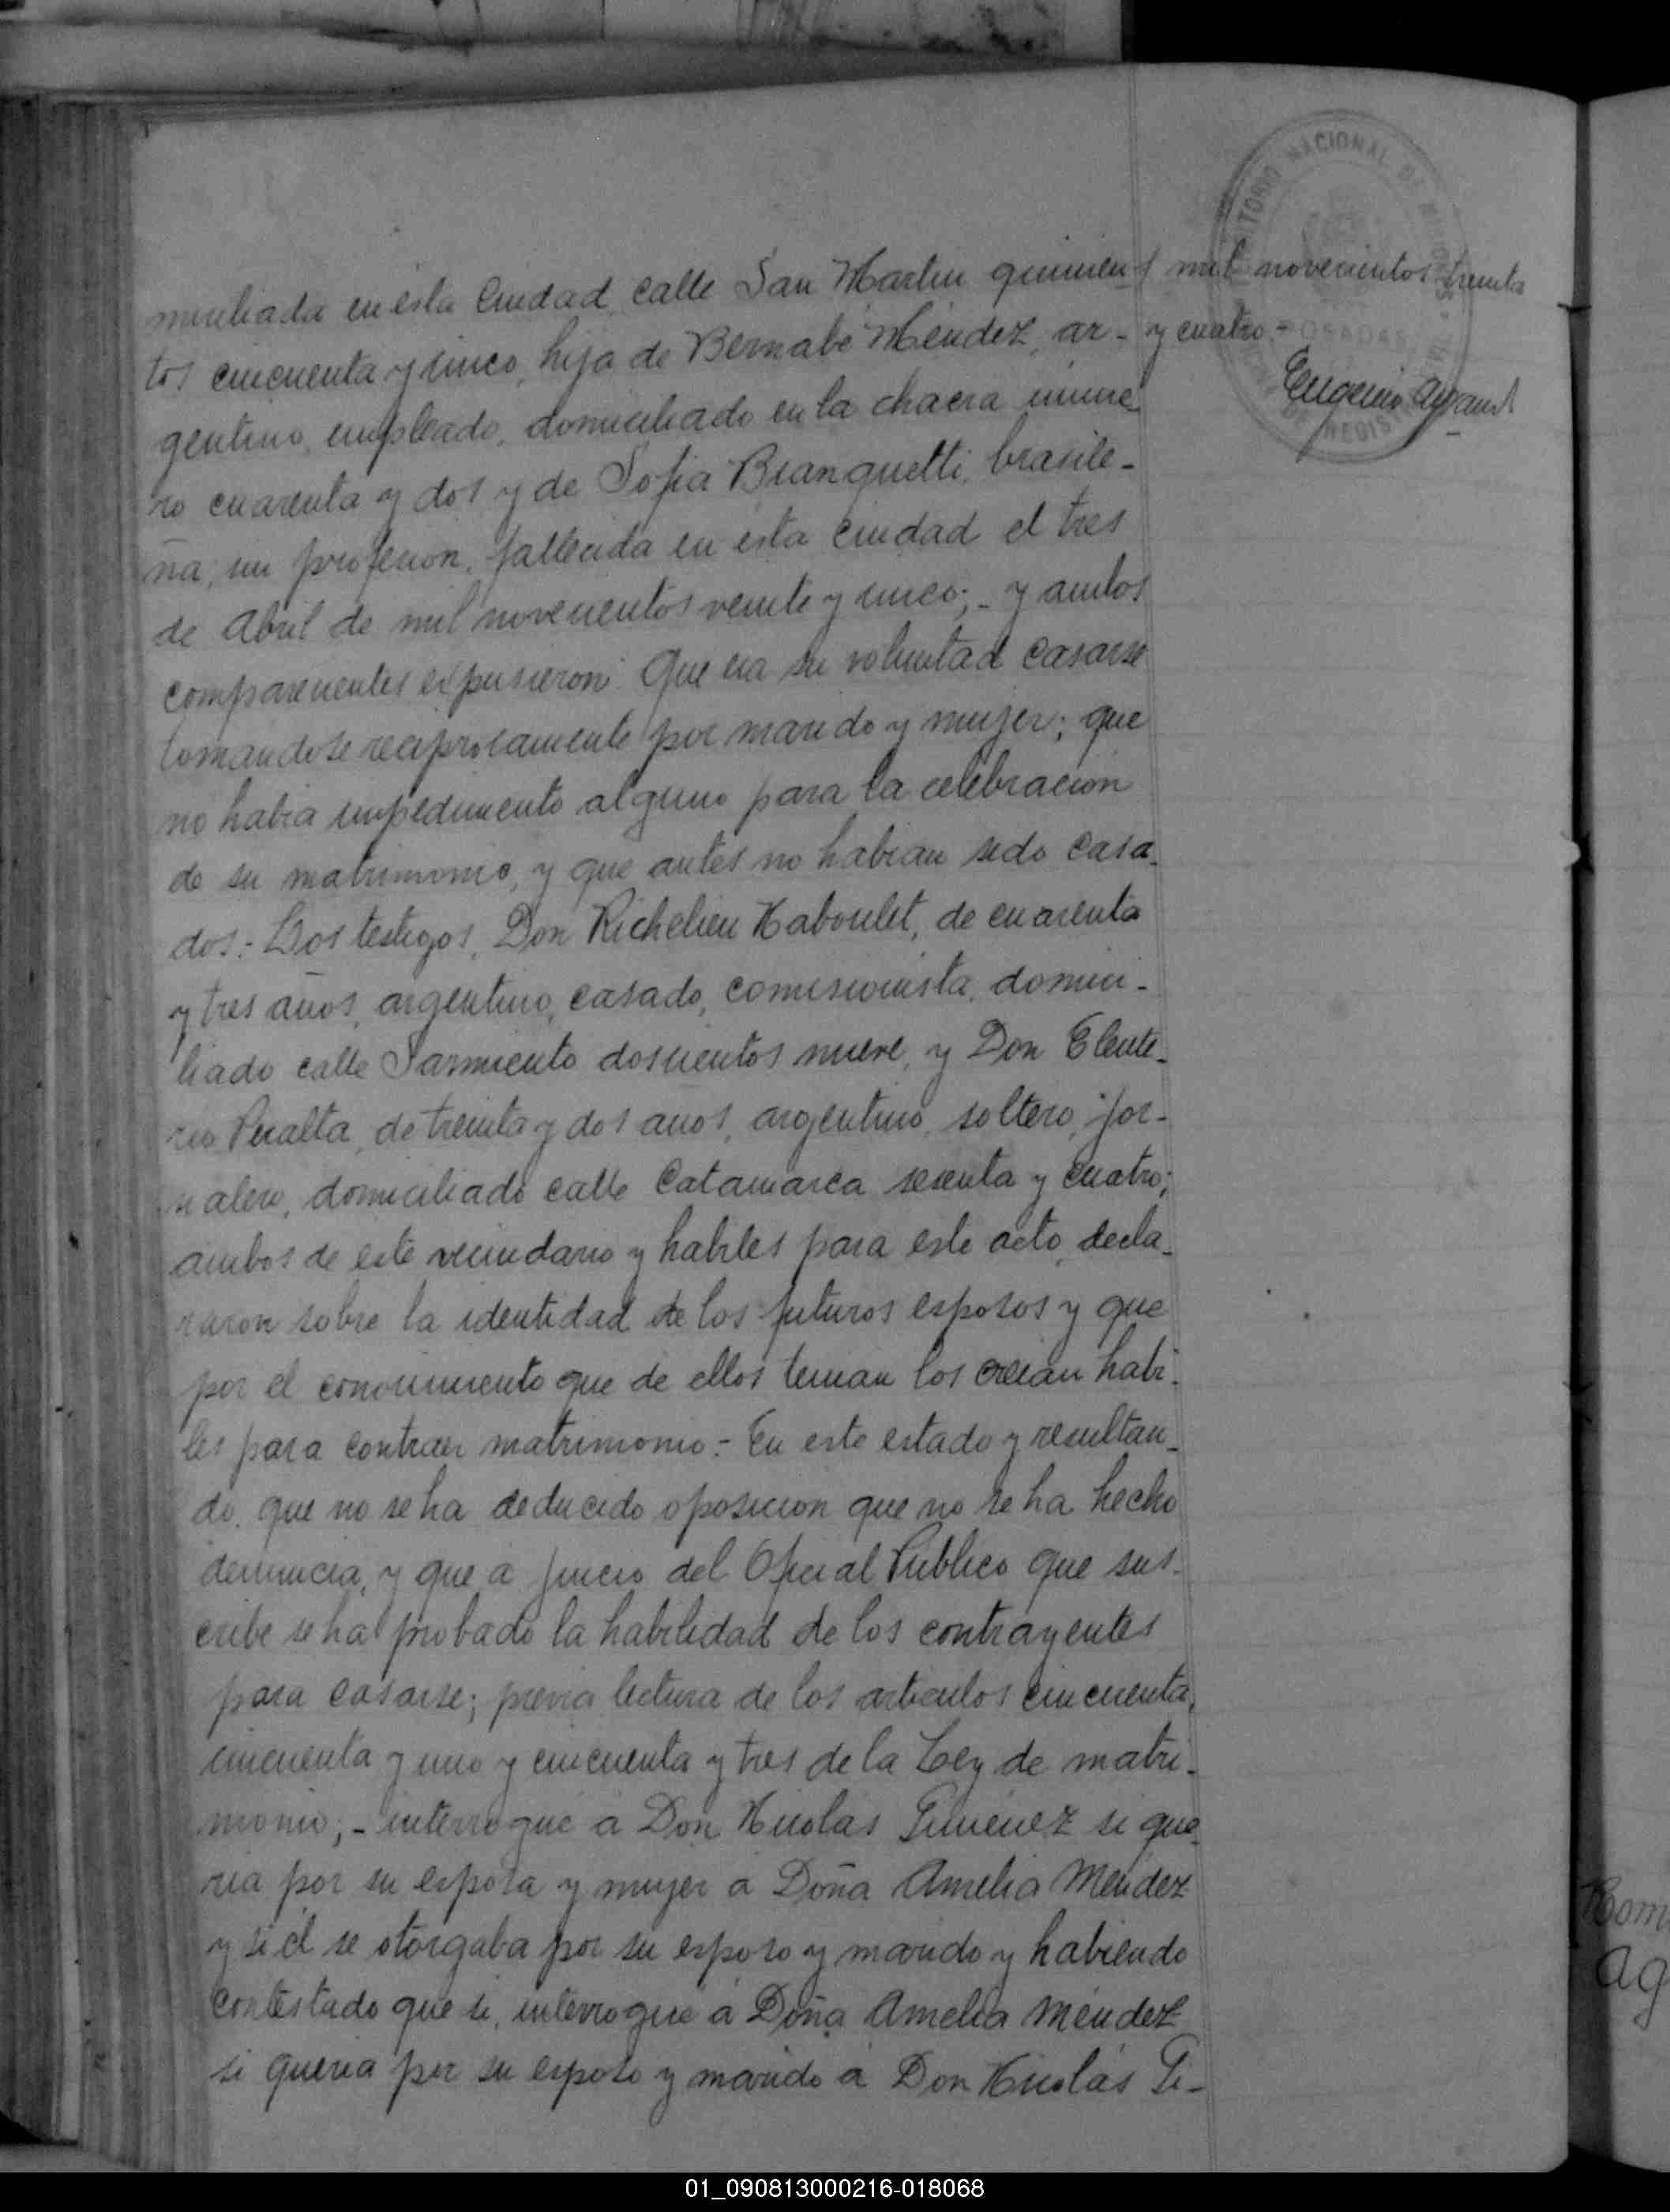 miciliada en ésta Ciudad, calle San Martin quinien-
tos cincuenta y cinco, hija de Bernabé Méndez, ar-
gentino, empleado, domiciliado en la chacra núme-
ro cuarenta y dos y de Sofia Bianquetti, brasile-
ña, sin profesion, fallecida en esta ciudad el tres
de Abril de mil novecientos veinte y cinco; - y ambos
comparecientes expusieron: Que era su voluntad casarse
tomandose reciprocamente por marido y mujer; que
no habia impedimento alguno para la celebración
de su matrimonio, y que antes no habian sido casa-
dos. - Los testigos, Don Richelieu Haboulet, de cuarenta
y tres años, argentino, casado, comisionista, domici-
liado calle Sarmiento doscientos nueve, y Don Eleute-
rio Peralta, de treinta y dos años, argentino, soltero, jor-
nalero, domiciliado calle Catamarca sesenta y cuatro;
ambos de este vecindario y habiles para este acto, decla-
raron sobre la identidad de los futuros esposos y que
por el conocimiento que de ellos tenian los creian habi-
les para contraer matrimonio. - En este estado y resultan-
do, que no se ha deducido oposicion que no se ha hecho
denuncia, y que á juicio del Oficial Público que sus-
cribe se ha probado la habilidad de los contrayentes
para casarse; previa lectura de los articulos cincuenta,
cincuenta y uno y cincuenta y tres de la Ley de matri-
monio; - interrogué á Don Nicolás Giménez si que-
ria por su esposa y mujer á Doña Amelia Méndez
y si él se otorgaba por su esposo y marido y habiendo
contestado que si, interrogué á Doña Amelia Méndez
si queria por su esposo y marido á Don Nicolás Gi-
mil novecientos treinta
y cuatro -
Eugenio
TERRITORIO NACIONAL DE MISIONES
POSADAS
REGIS
Nom
Ag
01_090813000216-018068